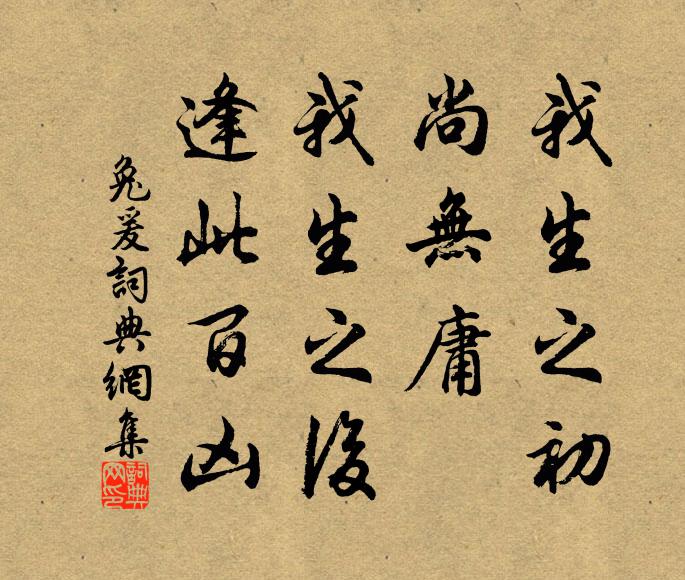 我生之初
尚無庸
我生之後
逢此百凶
兔爰詞典網集
詞典
网印